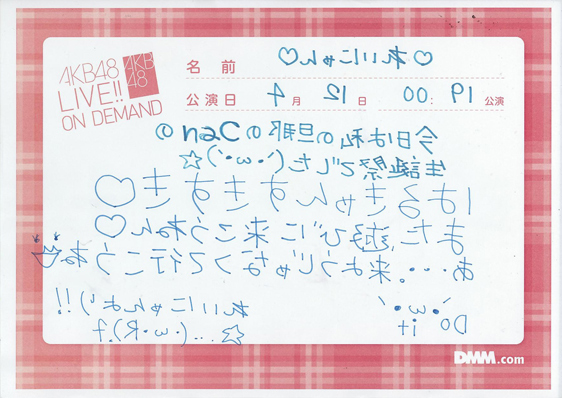 AKB48
LIVE!!
ON DEMAND
AKB
48
名前 ♡れいにゃん♡
公演日 4月 12日 19:00 公演
今日は私の旦那のCenの
生誕祭でした(´・ω・`)☆
はるきゃんすきすき♡
また遊びに来こうねん♡
あ・・・。来ようじゃなって行こうね
`・ω・´
Do it
れいにゃんより!!
☆...(・ω・R).f
DMM.com